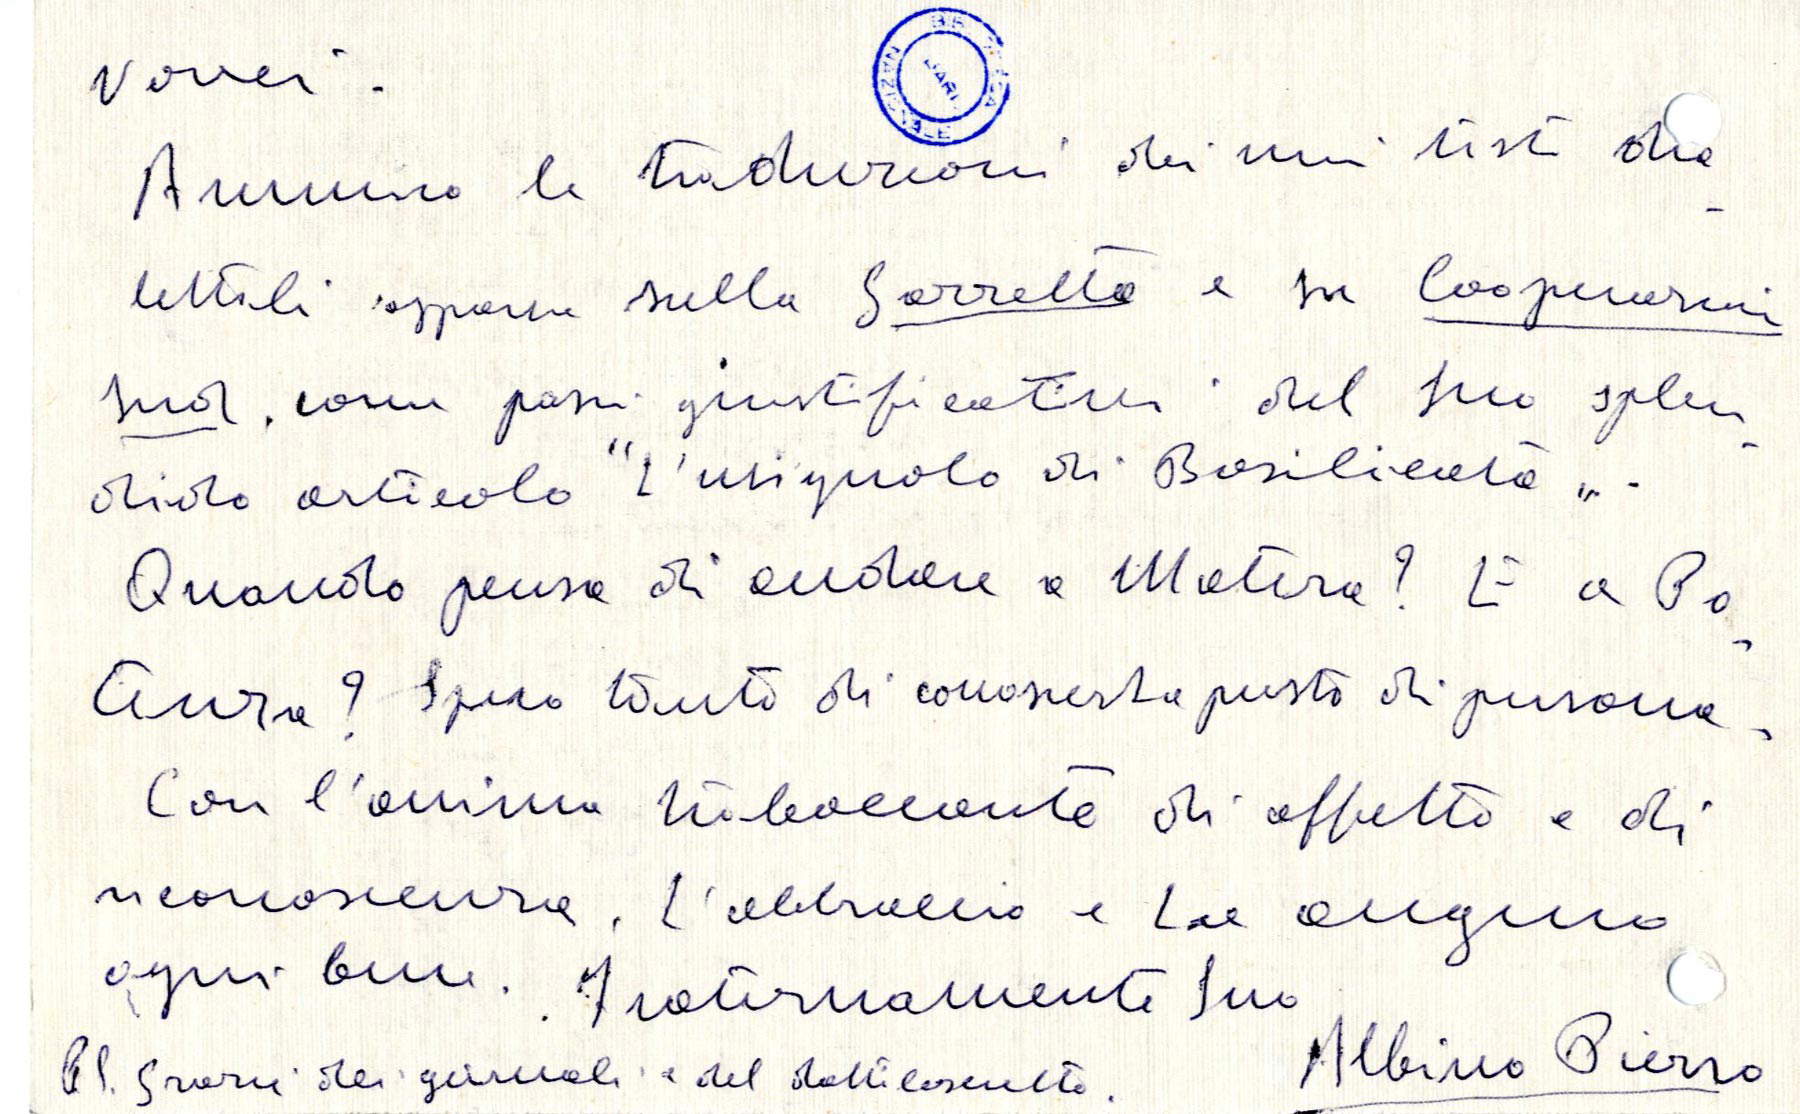 BARI
vorrei.
Ammiro le traduzioni dei miei testi dia-
lettali apparse sulla Gazzetta e su Cooperazione
Sud, come passi giustificativi del Suo splen-
dido articolo "L'usignolo di Basilicata".
Quando pensa di andare a Matera? E a Po-
tenza? Spero tanto di conoscerLa presto di persona.
Con l'anima traboccante di affetto e di
riconoscenza, L'abbraccio e Le auguro
ogni bene. Fraternamente Suo
Albino Pierro
PS. Grazie dei giornali e del dattiloscritto.